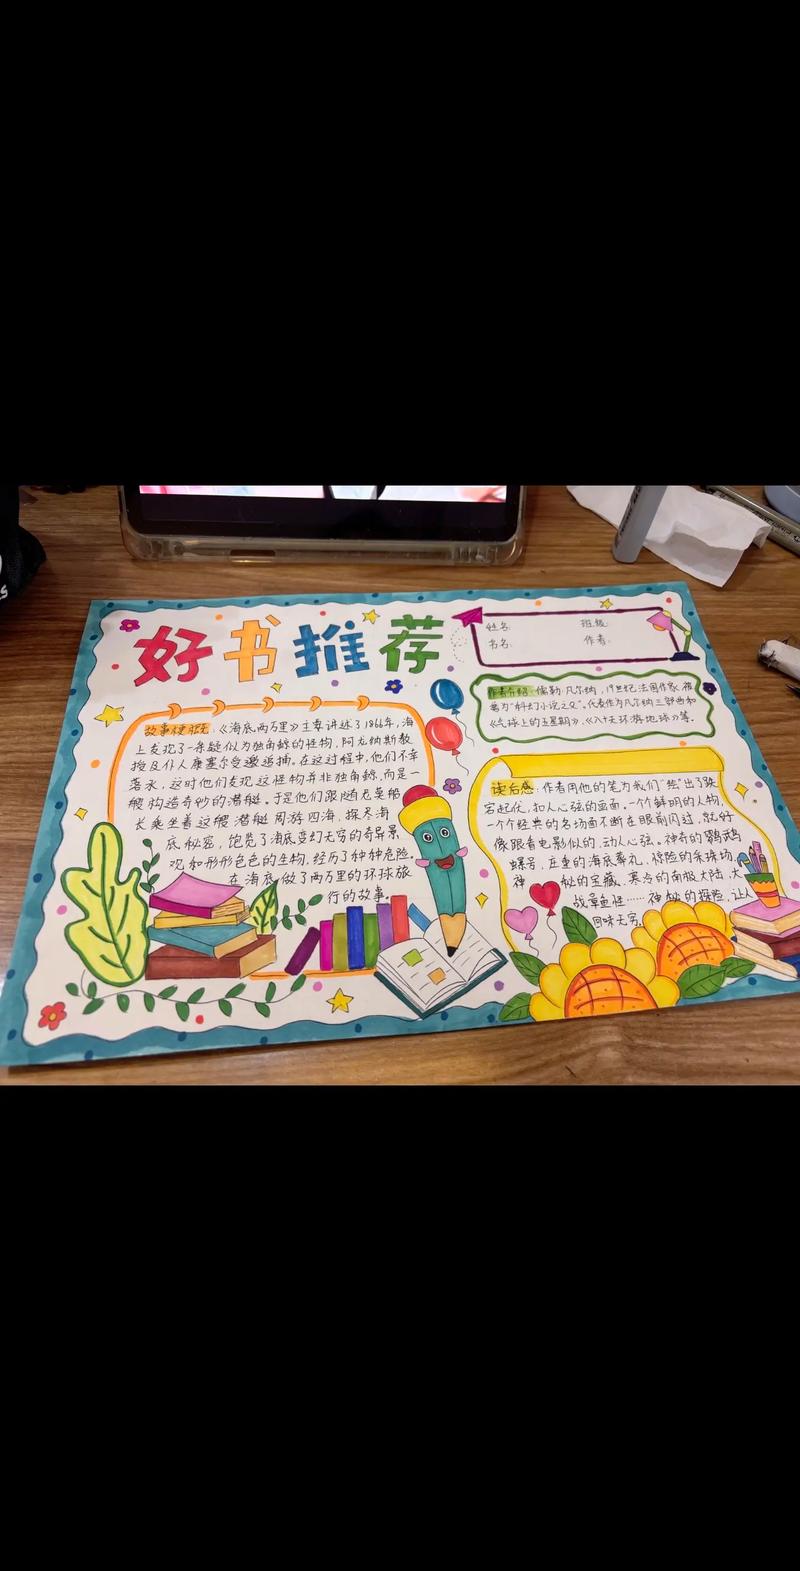 好书推荐
姓名: 班级:
书名: 作者:
作者介绍:儒勒·凡尔纳,19世纪法国作家,被
誉为"科幻小说之父"。代表作为凡尔纳三部曲和
《气球上的五星期》、《八十天环游地球》等。
故事梗概:《海底两万里》主要讲述了1866年,海
上发现了一条疑似为独角鲸的怪物,阿龙纳斯教
授及仆人康塞尔受邀追捕。在这过程中,他们不幸
落水,这时他们发现这怪物并非独角鲸,而是一
艘构造奇妙的潜艇。于是他们跟随尼莫船
长乘坐着这艘潜艇周游四海,探尽海
底秘密,饱览了海底变幻无穷的奇异景
观和形形色色的生物,经历了种种危险
在海底做了两万里的环球旅
行的故事。
读后感:作者用他的笔为我们"绘"出了跌
宕起伏,扣人心弦的画面。一个个鲜明的人物,
一个个经典的名场面不断在眼前闪过,就好
像跟看电影似的,动人心弦。神奇的鹦鹉
螺号、庄重的海底葬礼、惊险的采珠场、
神秘的宝藏、寒冷的南极大陆、大
战章鱼怪……神秘的探险,让人
回味无穷。